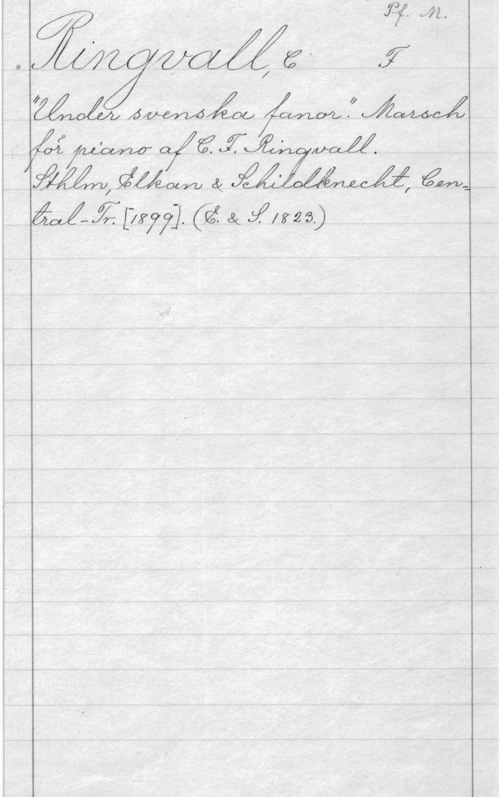 Pf. M.
Ringvall, C F
"Under svenska fanor". Marsch
för piano af C. F. Ringvall.
Sthlm, Elkan & Schildknecht, Cen=
tral-Tr. [1899]. (E. & S. 1823.)